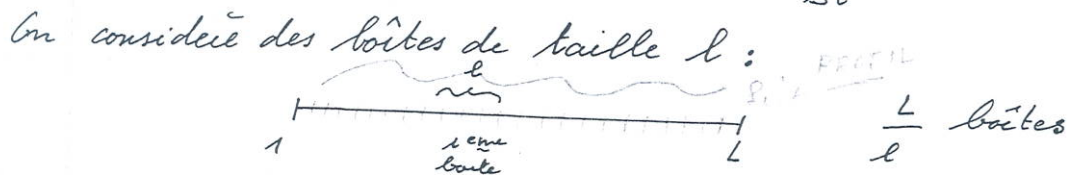 On considère des boîtes de taille l :
l
1
i eme
boite
L
L/l boîtes